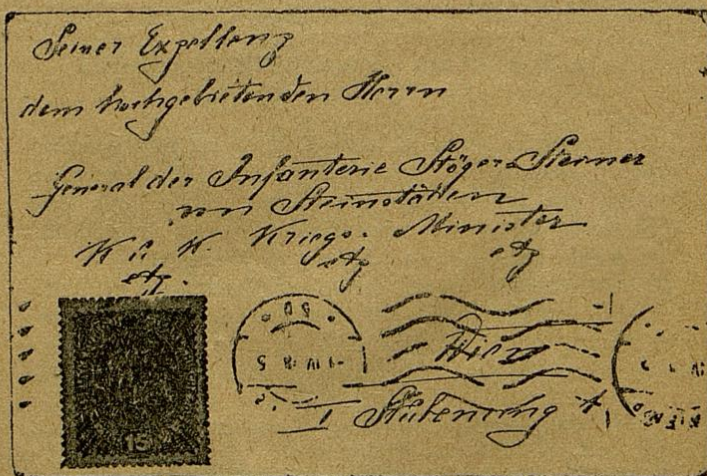 Seiner Exzellenz
dem hochgebietenden Herrn
General der Infanterie Stöger-Steiner
von Steinstätten
K. u. K. Kriegs-Minister
etz. etz etz
Wien
I Stubenring 1
15